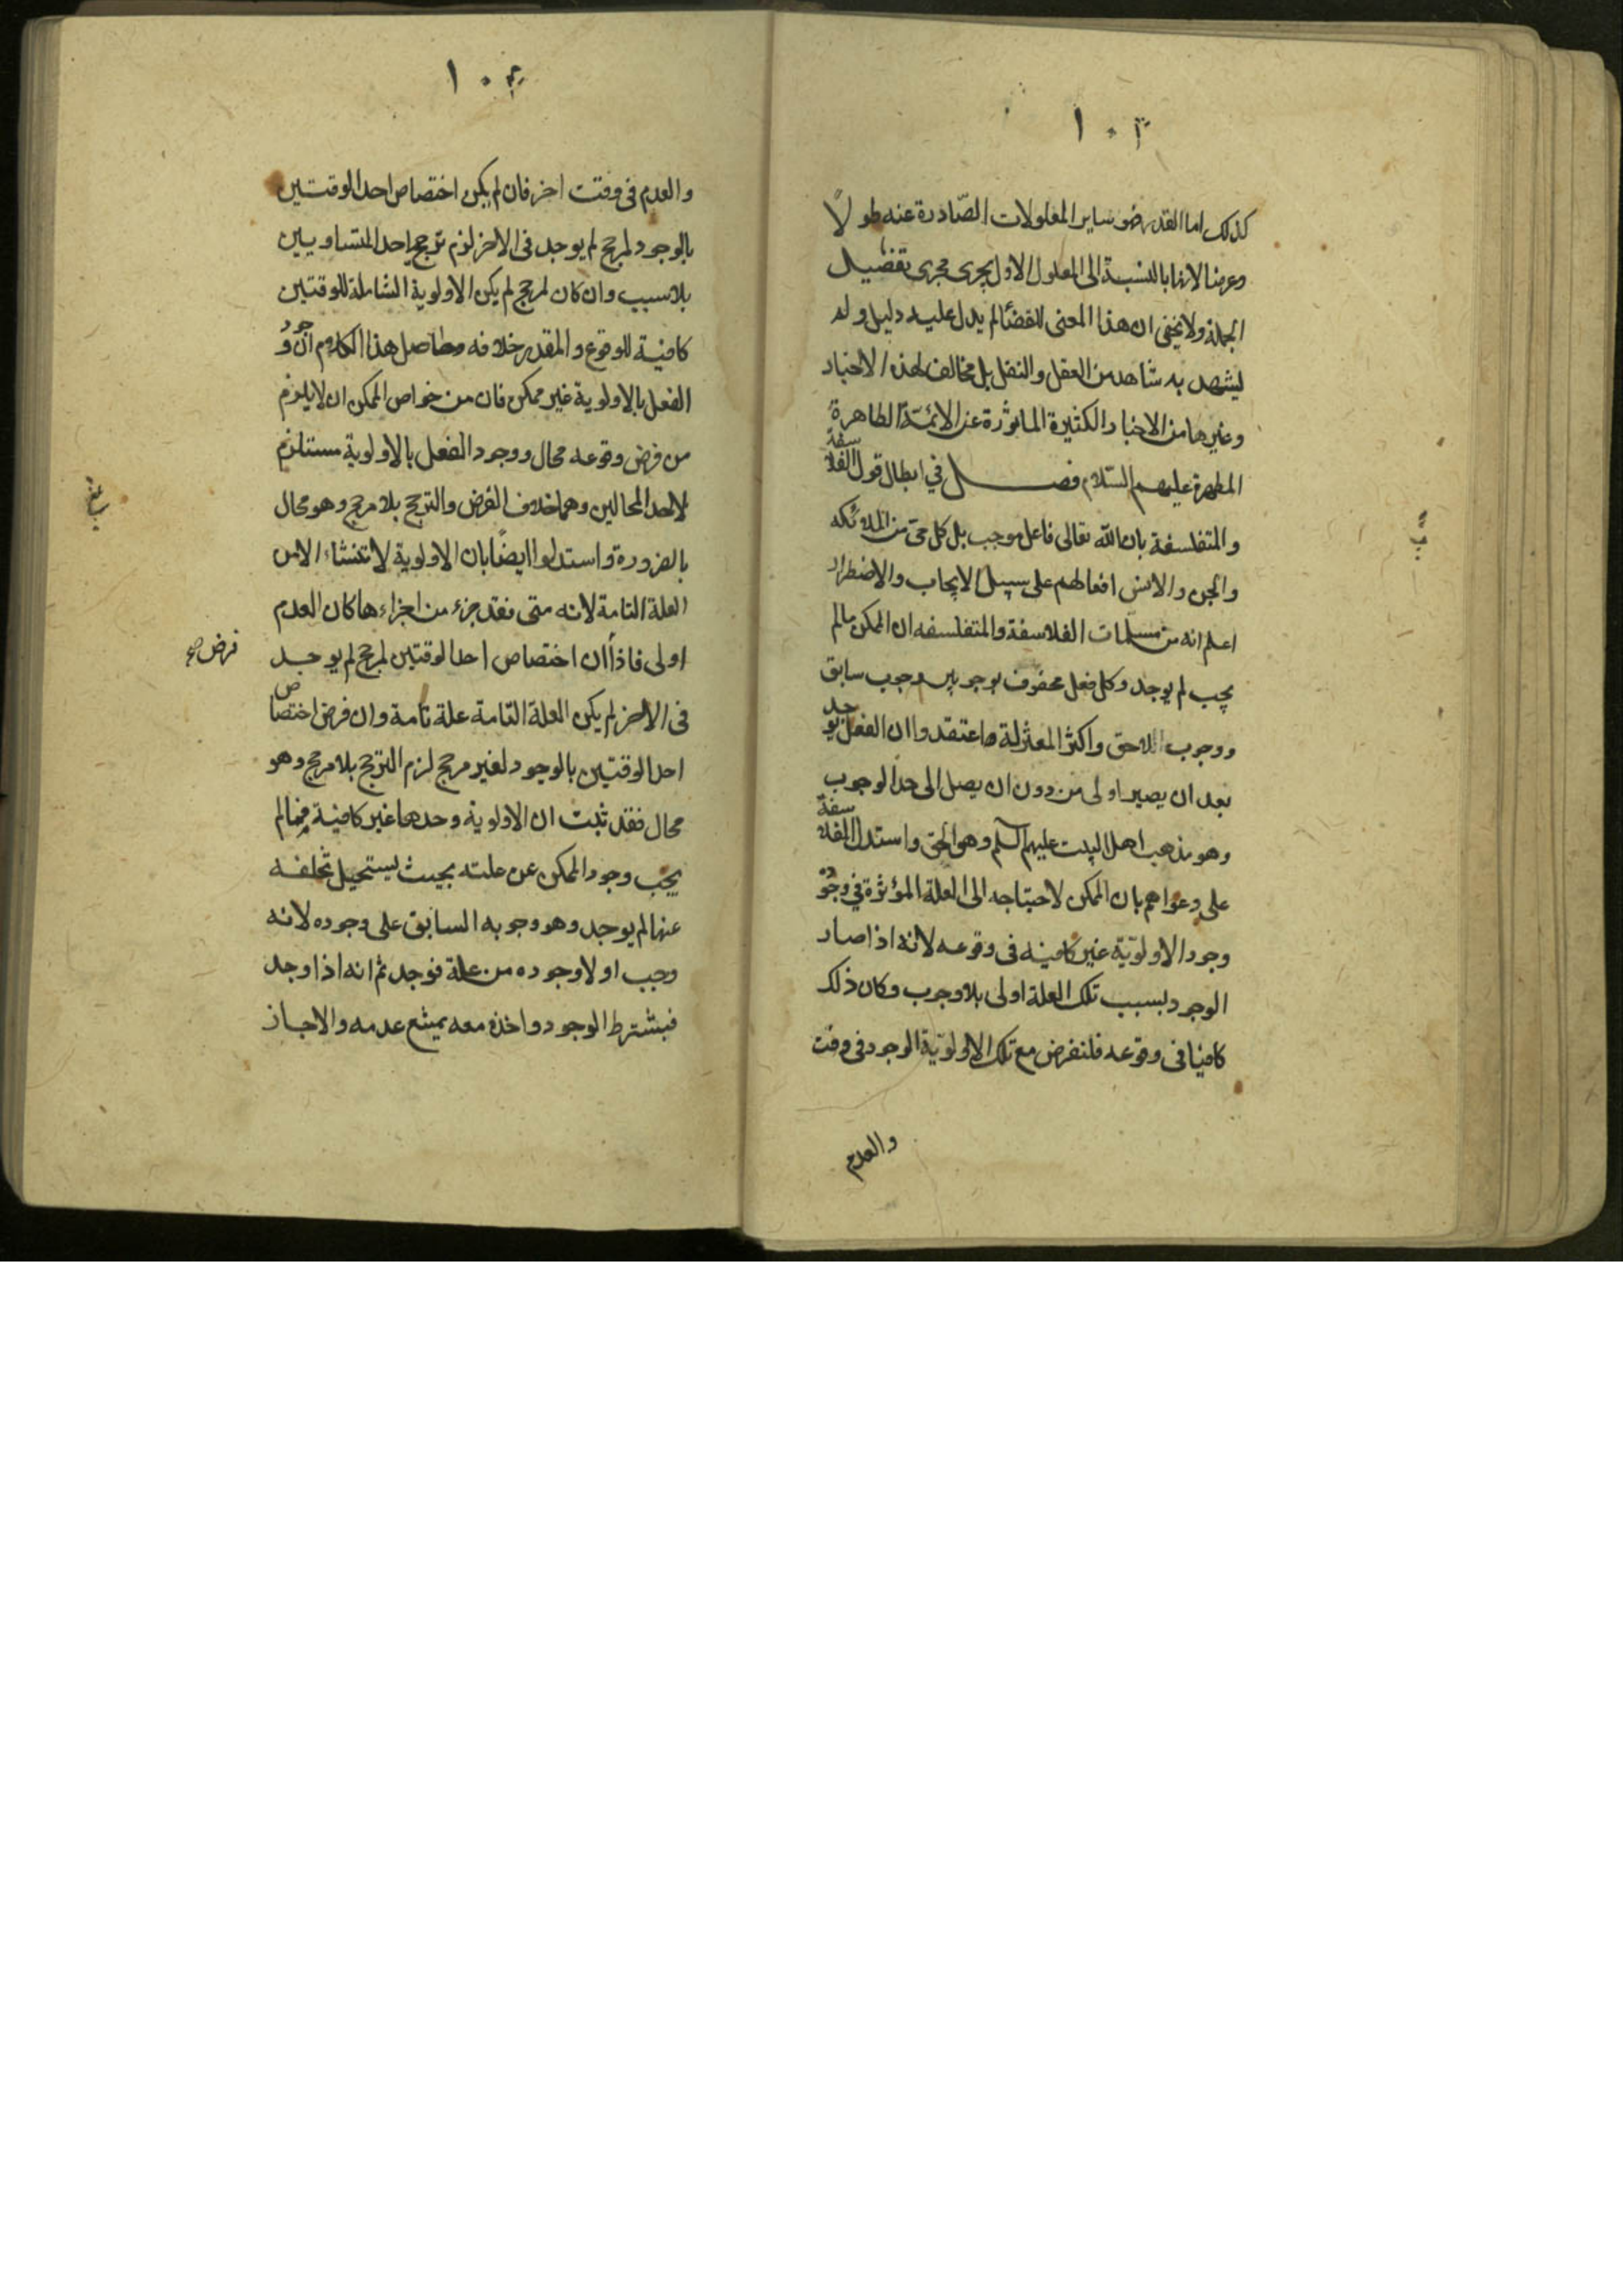 ١٠٣
كذلك اما القدر فهو ساير المعلولات الصّادرة عنه طولاً
وعرضا لانها بالنسبة الى المعلول الاول يجرى مجرى تفصيل
الجملة ولا يخفى ان هذا المعنى للقضا لم يدل عليه دليل ولم
يشهد به شاهد من العقل والنقل بل مخالف لهذه الاخبار
وغيرها من الاخبار الكثيرة الماثورة عن الائمّة الطاهرة
المطهرة عليهم السّلام فصل في ابطال قول الفلاسفة
والمتفلسفة بان الله تعالى فاعل موجب بل كل حى من الملائكه
والجن والانس افعالهم على سبيل الايجاب والاضطرار
اعلم انه من مسلّمات الفلاسفة والمتفلسفه ان الممكن مالم
يجب لم يوجد وكل فعل محفوف بوجوبين وجوب سابق
ووجوب اللاحق واكثر المعتزلة ما اعتقدوا ان الفعل يوجد
بعد ان يصير اولى من دون ان يصل الى حد الوجوب
وهو مذهب اهل البيت عليهم السلم وهو الحق واستدل الفلاسفة
على دعواهم بان الممكن لاحتياجه الى العلة المؤثرة في وجوده
وجود الاولوّية غير كافيه فى وقوعه لانه اذا صار
الوجود بسبب تلك العلة اولى بلا وجوب وكان ذلك
كافيا فى وقوعه فلنفرض مع تلك الاولوّية الوجود فى وقت
والعدم
١٠٤
والعدم فى وقت اخر فان لم يكن اختصاص احد الوقتين
بالوجود لمرجح لم يوجد فى الاخر لزم ترجيح احد المتساويين
بلا سبب وان كان لمرجح لم يكن الاولوية الشاملة للوقتين
كافية للوقوع والمقدر خلافه وحاصل هذا الكلام ان وجود
الفعل بالاولوية غير ممكن فان من خواص الممكن ان لا يلزم
من فرض وقوعه محال ووجود الفعل بالاولوية مستلزم
لاحد المحالين وهما خلاف الفرض والترجيح بلا مرجح وهو محال
بالضرورة واستدلوا ايضًا بان الاولوية لا تنشاء الا من
العلة التامة لانه متى فقد جزء من اجزاءها كان العدم
اولى فاذاً ان اختصاص احد الوقتين لمرجح لم يوجد
فرض صح
فى الاخر لم يكن العلة التامة علة تامة وان فرض اختصاص
احد الوقتين بالوجود لغير مرجح لزم الترجيح بلا مرجح وهو
محال فقد ثبت ان الاولوية وحدها غير كافية فما لم
يجب وجود الممكن عن علته بحيث يستحيل تخلفه
عنها لم يوجد وهو وجوبه السابق على وجوده لانه
وجب اولا وجوده من علة فوجد ثم انه اذا وجد
فبشترط الوجود واخذه معه يمتنع عدمه والا جاز